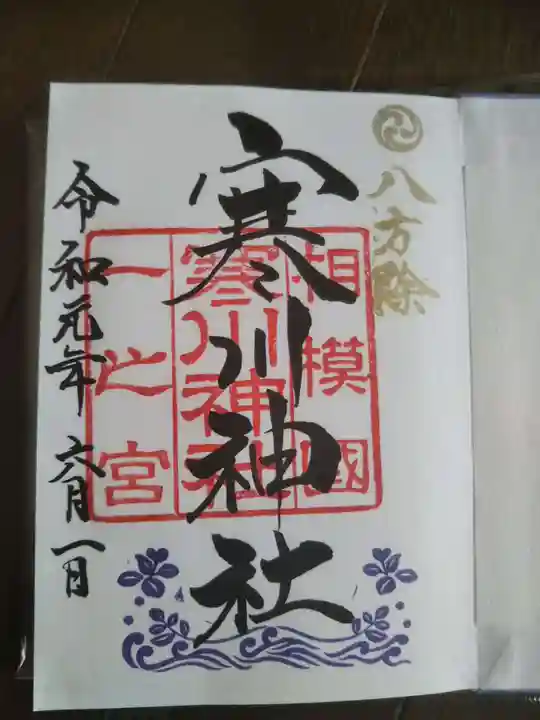 八方除
寒川神社
相模國
寒川神社
一之宮
令和元年 六月一日